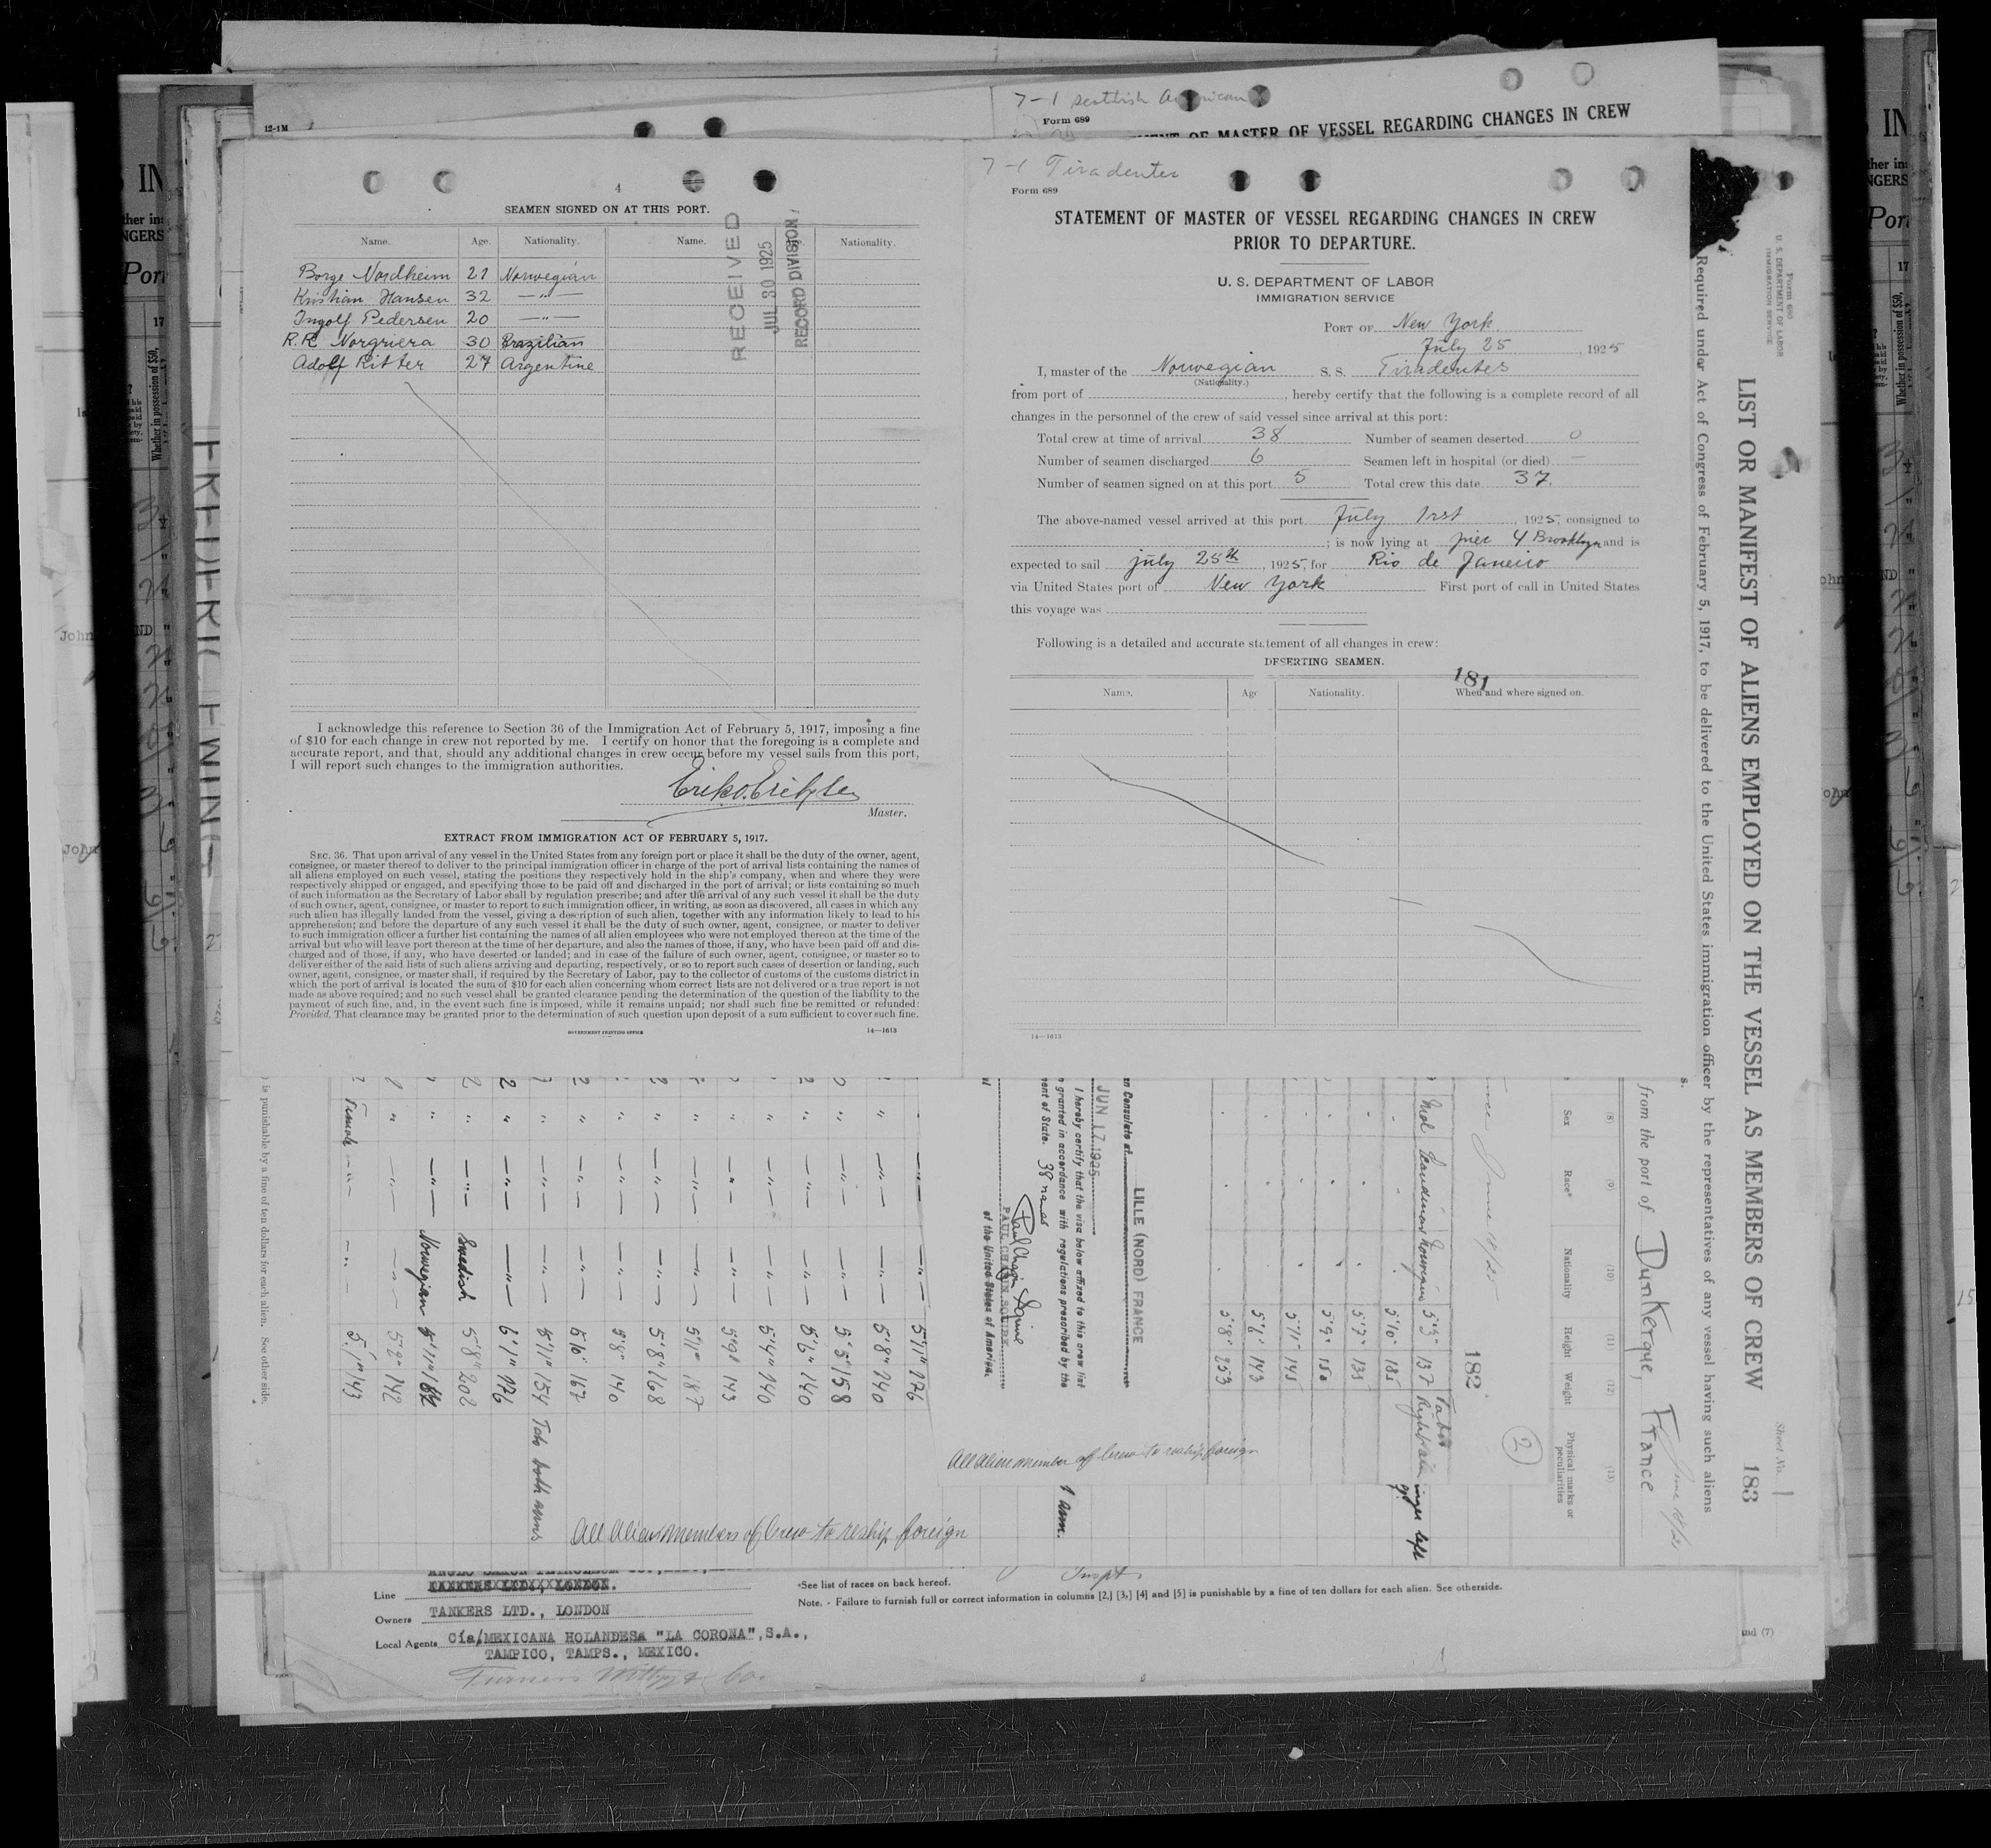 7-1 Scottish American
12-1M
Form 689
OF MASTER OF VESSEL REGARDING CHANGES IN CREW
4
SEAMEN SIGNED ON AT THIS PORT.
Name. Age. Nationality. Name. Nationality.
Borge Nordheim 21 Norwegian
Kristian Hansen 32 —"—
Ingolf Pedersen 20 —"—
R.R. Norgriera 30 Brazilian
Adolf Ritter 27 Argentine
RECEIVED
JUL 30 1925
RECORD DIVISION
I acknowledge this reference to Section 36 of the Immigration Act of February 5, 1917, imposing a fine
of $10 for each change in crew not reported by me. I certify on honor that the foregoing is a complete and
accurate report, and that, should any additional changes in crew occur before my vessel sails from this port,
I will report such changes to the immigration authorities.
Master.
EXTRACT FROM IMMIGRATION ACT OF FEBRUARY 5, 1917.
SEC. 36. That upon arrival of any vessel in the United States from any foreign port or place it shall be the duty of the owner, agent,
consignee, or master thereof to deliver to the principal immigration officer in charge of the port of arrival lists containing the names of
all aliens employed on such vessel, stating the positions they respectively hold in the ship's company, when and where they were
respectively shipped or engaged, and specifying those to be paid off and discharged in the port of arrival; or lists containing so much
of such information as the Secretary of Labor shall by regulation prescribe; and after the arrival of any such vessel it shall be the duty
of such owner, agent, consignee, or master to report to such immigration officer, in writing, as soon as discovered, all cases in which any
such alien has illegally landed from the vessel, giving a description of such alien, together with any information likely to lead to his
apprehension; and before the departure of any such vessel it shall be the duty of such owner, agent, consignee, or master to deliver
to such immigration officer a further list containing the names of all alien employees who were not employed thereon at the time of the
arrival but who will leave port thereon at the time of her departure, and also the names of those, if any, who have been paid off and dis-
charged and of those, if any, who have deserted or landed; and in case of the failure of such owner, agent, consignee, or master so to
deliver either of the said lists of such aliens arriving and departing, respectively, or so to report such cases of desertion or landing, such
owner, agent, consignee, or master shall, if required by the Secretary of Labor, pay to the collector of customs of the customs district in
which the port of arrival is located the sum of $10 for each alien concerning whom correct lists are not delivered or a true report is not
made as above required; and no such vessel shall be granted clearance pending the determination of the question of the liability to the
payment of such fine, and, in the event such fine is imposed, while it remains unpaid; nor shall such fine be remitted or refunded:
Provided, That clearance may be granted prior to the determination of such question upon deposit of a sum sufficient to cover such fine.
GOVERNMENT PRINTING OFFICE
14—1613
7-1 Tiradentes
Form 689
STATEMENT OF MASTER OF VESSEL REGARDING CHANGES IN CREW
PRIOR TO DEPARTURE.
U. S. DEPARTMENT OF LABOR
IMMIGRATION SERVICE
PORT OF New York
July 25, 1925
I, master of the Norwegian S. S. Tiradentes
(Nationality.)
from port of , hereby certify that the following is a complete record of all
changes in the personnel of the crew of said vessel since arrival at this port:
Total crew at time of arrival 38 Number of seamen deserted 0
Number of seamen discharged 6 Seamen left in hospital (or died) —
Number of seamen signed on at this port 5 Total crew this date 37
The above-named vessel arrived at this port July 1rst, 1925, consigned to
; is now lying at pier 4 Brooklyn and is
expected to sail july 25th, 1925, for Rio de Janeiro
via United States port of New York First port of call in United States
this voyage was
Following is a detailed and accurate statement of all changes in crew:
DESERTING SEAMEN.
181
Name. Age Nationality. When and where signed on.
14—1613
Form 680
U. S. DEPARTMENT OF LABOR
IMMIGRATION SERVICE
LIST OR MANIFEST OF ALIENS EMPLOYED ON THE VESSEL AS MEMBERS OF CREW 183
Sheet No. 1
Required under Act of Congress of February 5, 1917, to be delivered to the United States immigration officer by the representatives of any vessel having such aliens
from the port of Dunkerque, France
(8) (9) (10) (11) (12) (13)
Sex Race* Nationality Height Weight Physical marks or peculiarities
2
182
5'3" 137
5'10" 185
5'7" 135
5'9" 150
5'11" 145
5'6" 143
5'8" 253
LILLE (NORD) FRANCE
I hereby certify that the visa below affixed to this crew list
granted in accordance with regulations prescribed by the
ent of State. 38 names
JUN 17 1925
PAUL CHAPIN SQUIRE
of the United States of America.
All Alien member of Crew to reship foreign
5'11" 176
5'8" 140
5'5" 158
5'6" 140
5'4" 140
5'9" 143
5'11" 187
5'8" 168
5'8" 140
5'6" 167
5'11" 154 Tato both arms
6'1" 176
Swedish 5'8" 202
Norwegian 5'11"
5'2" 142
Female 5'1" 143
All Alien members of Crew to reship foreign
is punishable by a fine of ten dollars for each alien. See other side.
FREDERIC EWING
Line TANKERS LTD., LONDON.
Owners TANKERS LTD., LONDON
Local Agents Cía/MEXICANA HOLANDESA "LA CORONA", S.A.,
TAMPICO, TAMPS., MEXICO.
Furness Withy & Co.
*See list of races on back hereof.
Note. - Failure to furnish full or correct information in columns [2,] [3,] [4] and [5] is punishable by a fine of ten dollars for each alien. See otherside.
and (7)
Whether in possession of $50,